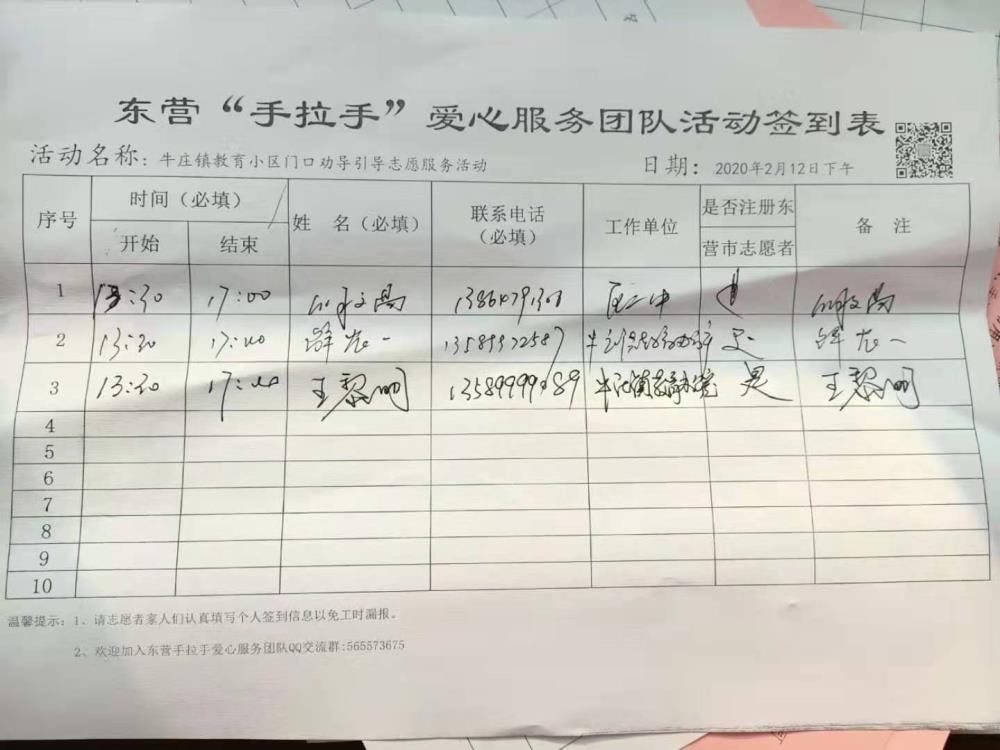 东营“手拉手”爱心服务团队活动签到表
活动名称：牛庄镇教育小区门口劝导引导志愿服务活动 日期：2020年2月12日下午
序号 时间（必填） 姓 名（必填） 联系电话（必填） 工作单位 是否注册东营市志愿者 备 注
开始 结束
1 13:30 17:00
2 13:30 17:00
3 13:30 17:00 王黎明 是 王黎明
4
5
6
7
8
9
10
温馨提示：1、请志愿者家人们认真填写个人签到信息以免工时漏报。
2、欢迎加入东营手拉手爱心服务团队QQ交流群:565573675